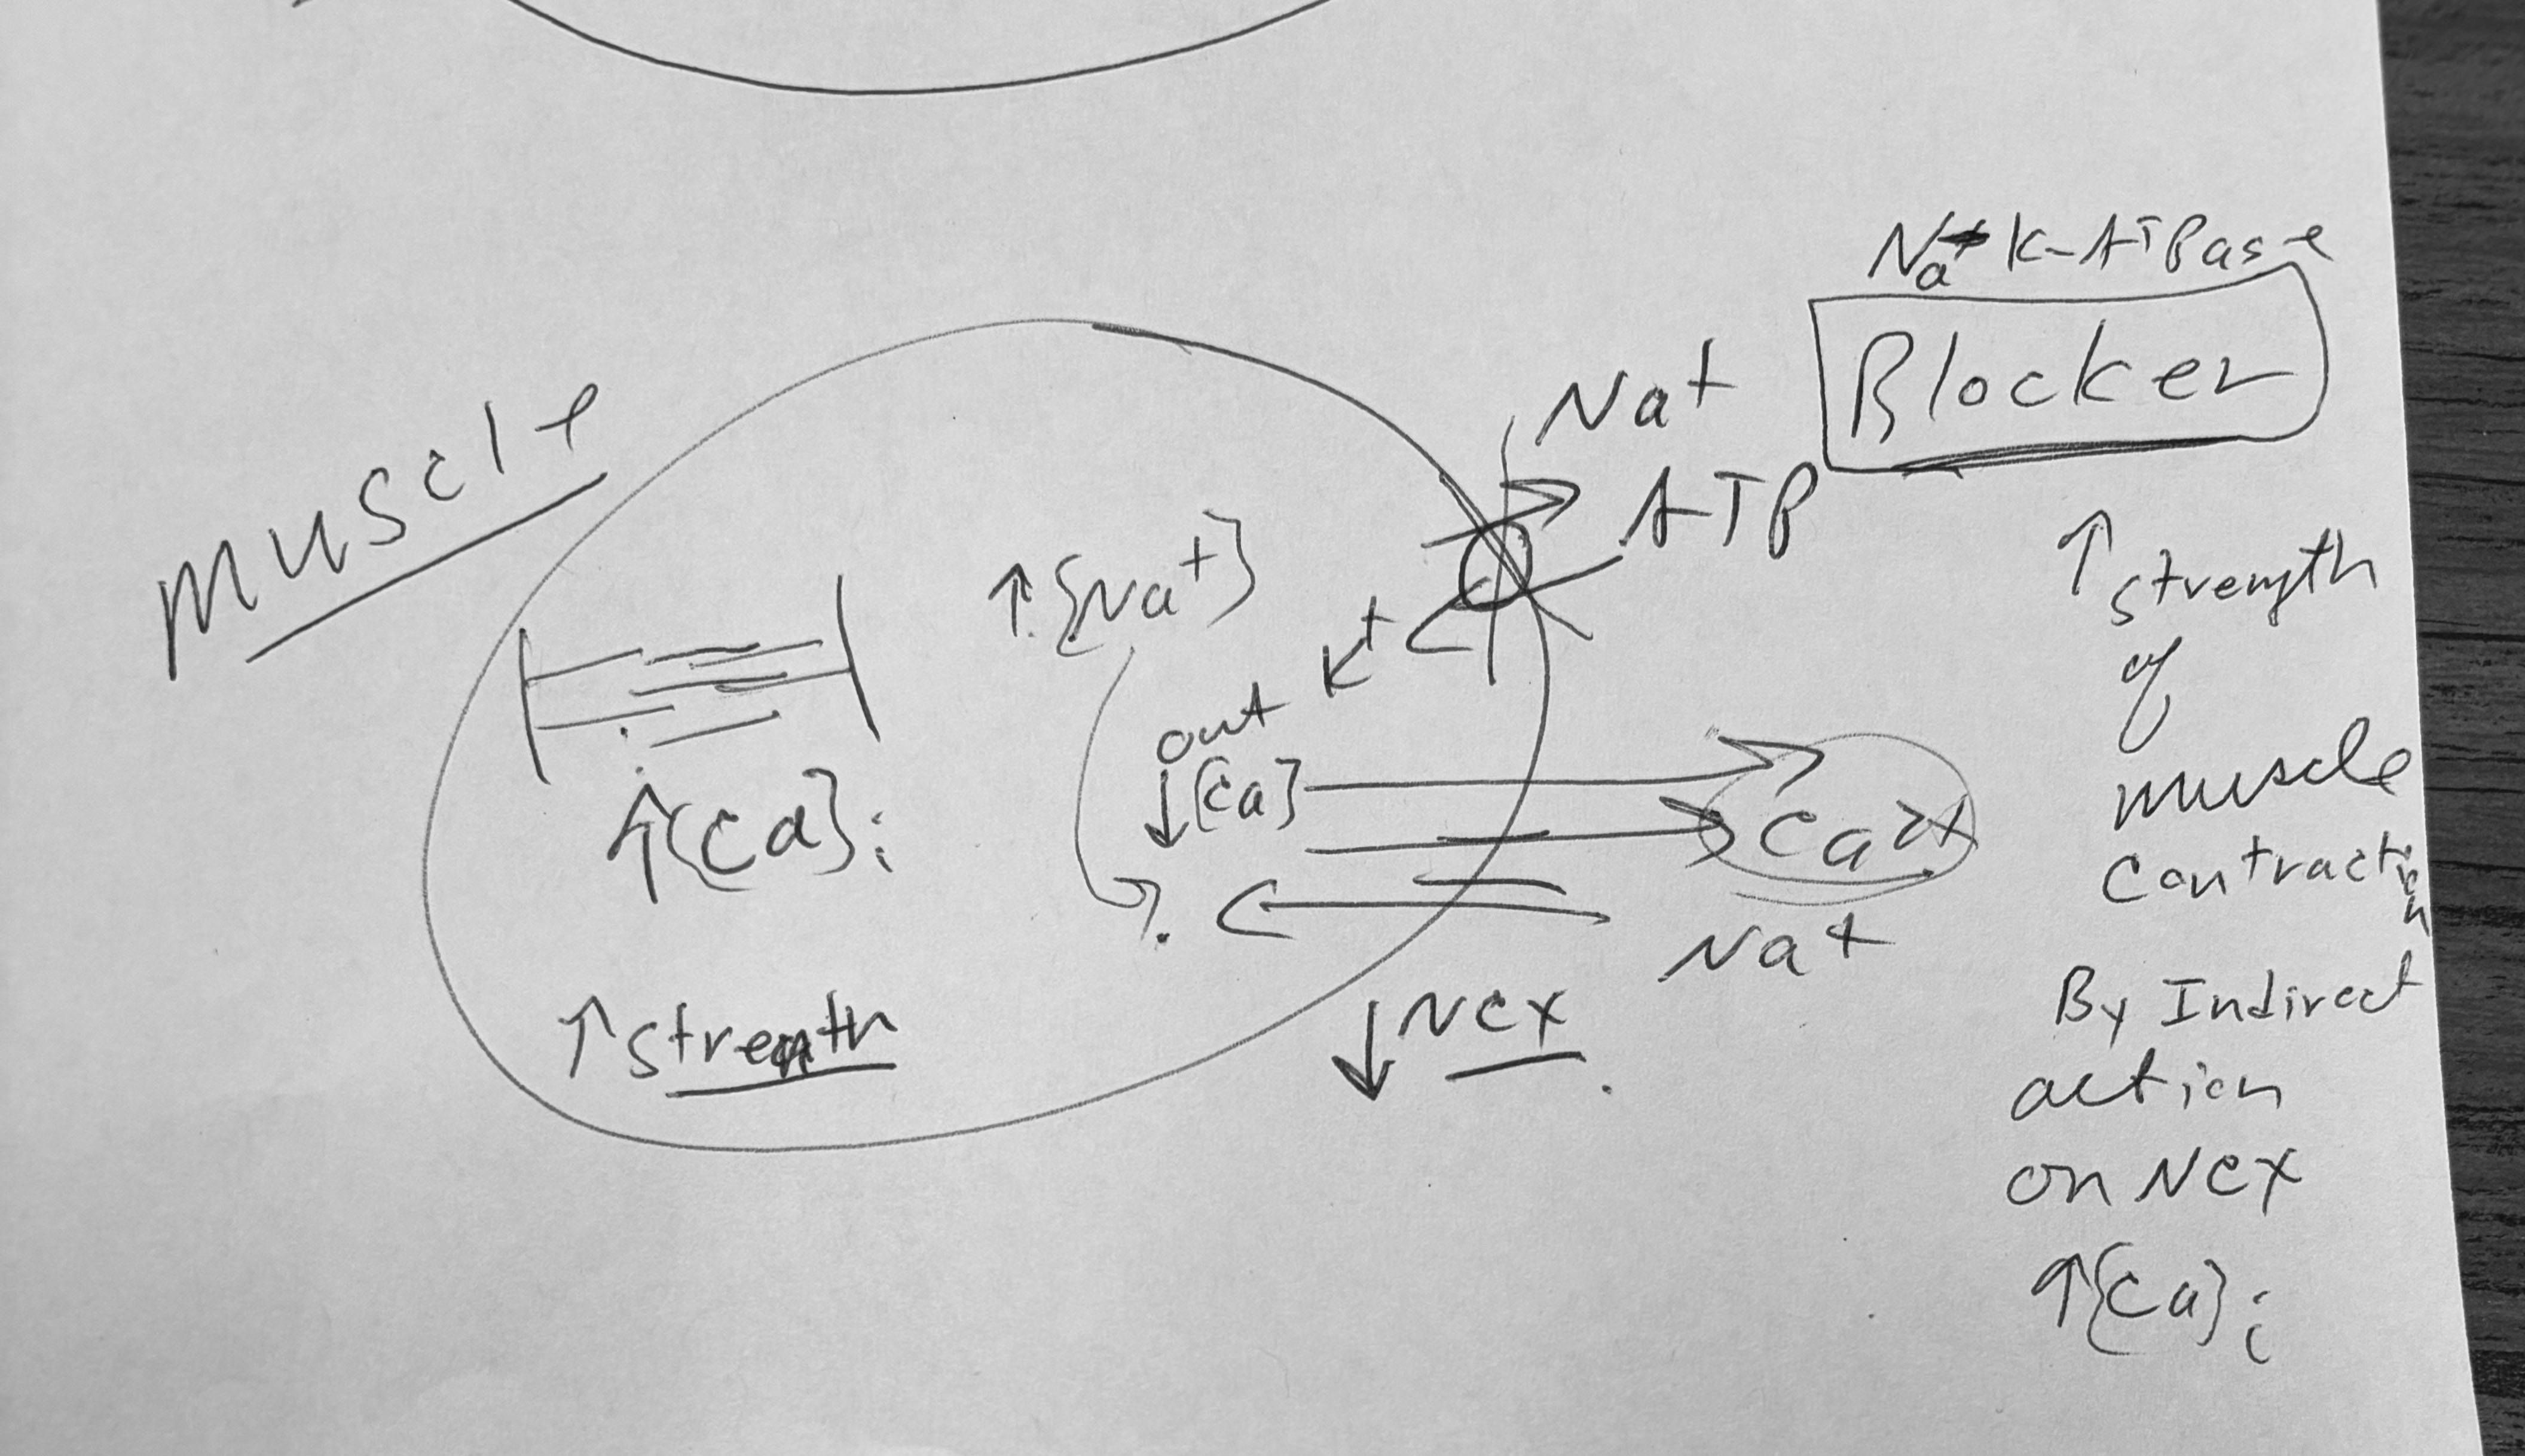 Na+ K-ATPase
Blocker
muscle
Na+
ATP
↑[Na+]
K+
out
↓[Ca]
Ca2+
↑[Ca]i
Na+
↓NCX
↑strength
↑strength
of
muscle
contraction
By Indirect
action
on NCX
↑[Ca]i